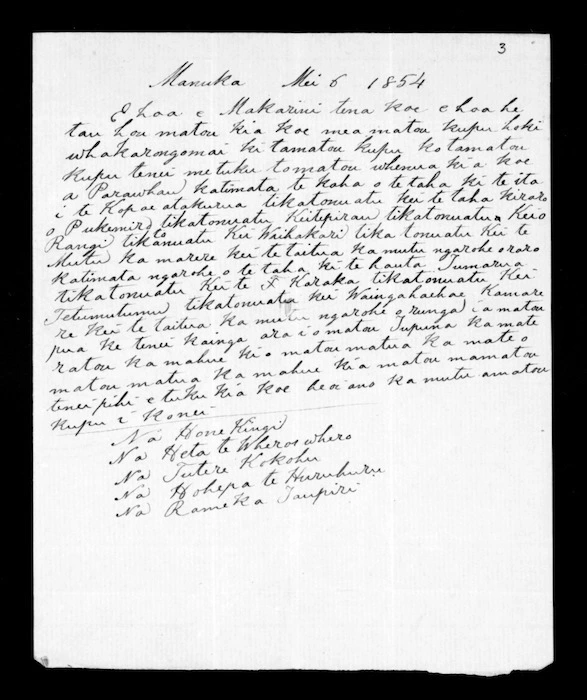 3
Manuka Mei 6 1854
E hoa e Makarini tena koe e hoa he
tau hou matou kia koe mea matou kupu hoki
whakarongomai ki tamatou kupu ko tamatou
kupu tenei me tuku tomatou whenua ki a koe
a Parawhau katimata te kaha o te taha ki te ita
i te Kopae atakurua tikatonuatu kei te taha kiraro
o Pukemiro tikatonuatu Keitepirau tikatonuatu Keio
Rangi tikatonuatu Kei Waihakari tika tonuatu Kei te
Mutu ka marere kei te taitua ka mutu ngarohe oraro
katimata ngarohe o te taha ki te hauta Tumarua
tikatonuatu Kei te F Karaka tikatonuatu Kei
Tetumutumu tikatonuatu kei Waingahaehae Kamare
re kei te taitua ka mutu ngarohe orunga i a matou
pua ke tenei kainga ara i o matou Tupuna ka mate
ratou ka mahue ki o matou matua ka mate o
matou matua ka mahue ki a matou mamatou
tenei pihi e tuku kia koe heoi ano ka mutu amatou
kupu i konei
Na Hone Kingi
Na Heta te Wherowhero
Na Tutere Kokohu
Na Hohepa te Huruhuru
Na Rameka Taupiri